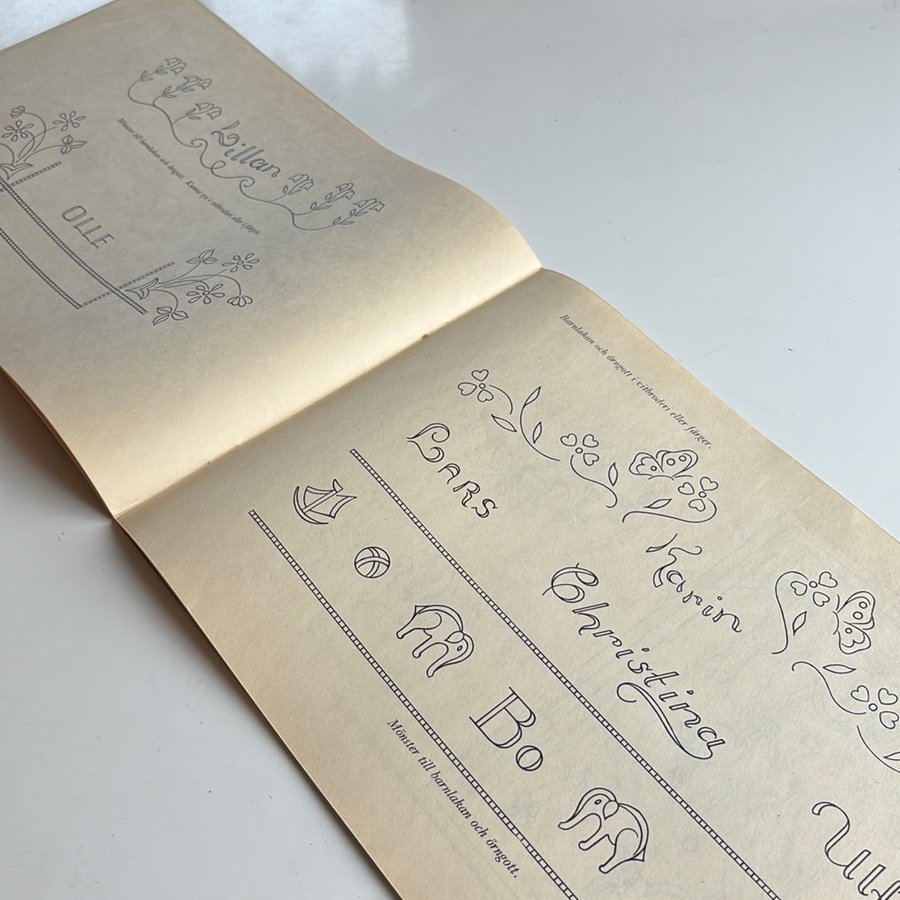 Lillan
Mönster till barnlakan och örngott. Kunna sys i vitbroderi eller i färger.
OLLE
Barnlakan och örngott i vitbroderi eller färger.
LARS
Karin
Christina
Bo
Mönster till barnlakan och örngott.